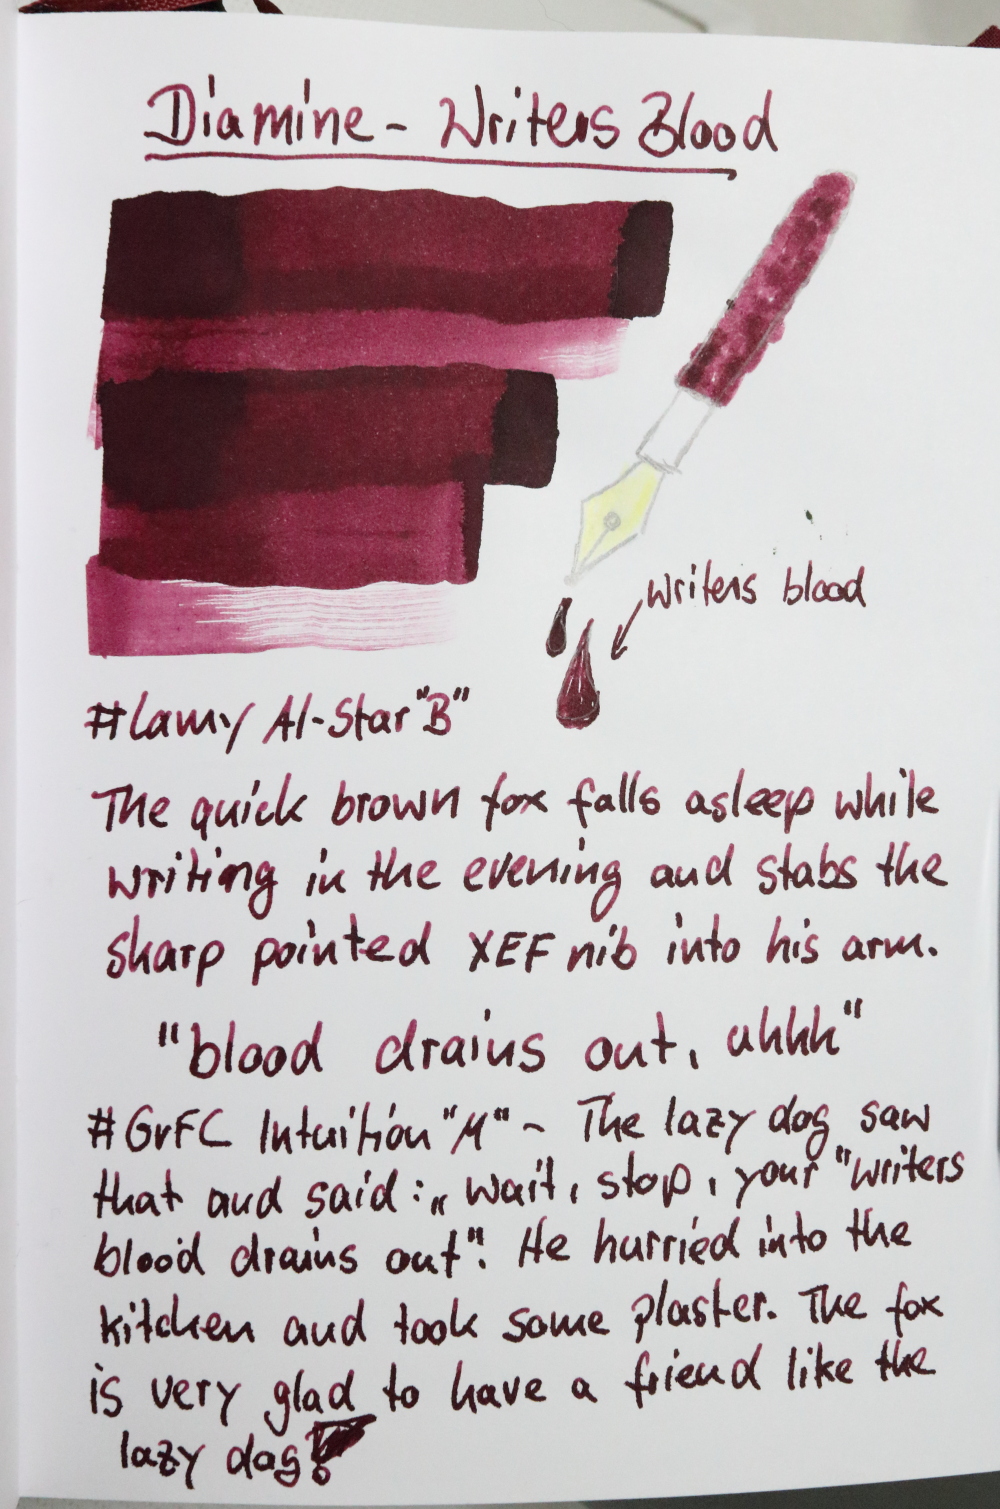 Diamine - Writers Blood
writers blood
#Lamy Al-Star "B"
The quick brown fox falls asleep while
writing in the evening and stabs the
sharp pointed XEF nib into his arm.
"blood drains out, uhhh"
#GvFC Intuition "M" ~ The lazy dog saw
that and said: „wait, stop, your "writers
blood drains out". He hurried into the
kitchen and took some plaster. The fox
is very glad to have a friend like the
lazy dog!